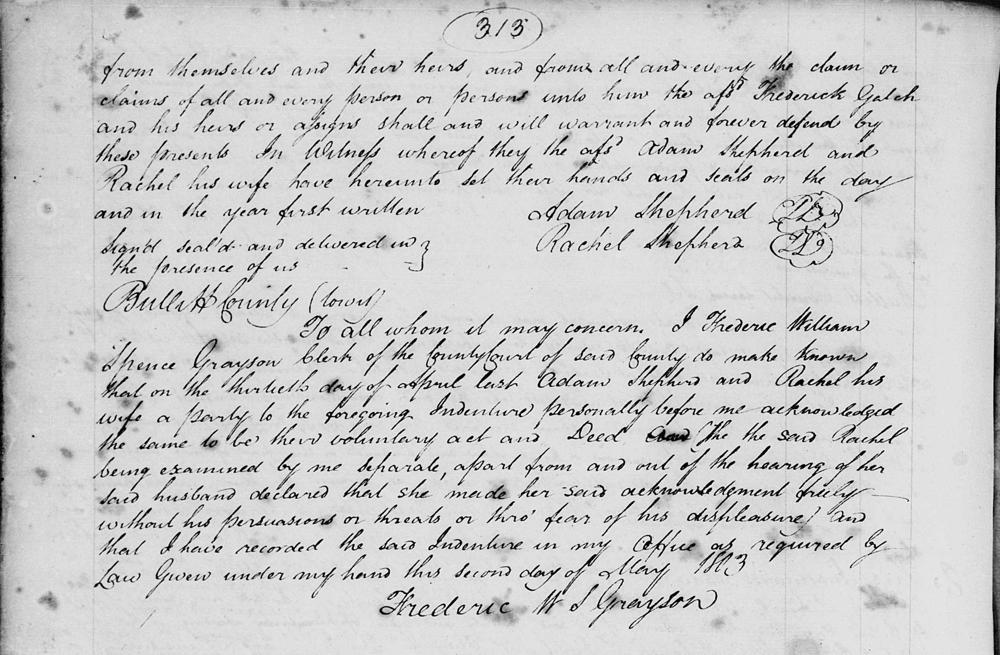 313
from themselves and their heirs, and from all and every the claim or
claims of all and every person or persons unto him the afsd Frederick Gatch
and his heirs or assigns shall and will warrant and forever defend by
these presents In Witness whereof they the afsd Adam Shepherd and
Rachel his wife have hereunto set their hands and seals on the day
and in the year first written
Adam Shepherd
Rachel Shepherd
Signd seal'd and delivered in
the presence of us
Bullitt County (towit)
To all whom it may concern. I Frederic William
Spence Grayson Clerk of the County Court of said County do make known
that on the thirtieth day of April last Adam Shepherd and Rachel his
wife a party to the foregoing Indenture personally before me acknowledged
the same to be their voluntary act and Deed the the said Rachel
being examined by me separate, apart from and out of the hearing of her
said husband declared that she made her said acknowledgment freely
without his persuasions or threats or thro' fear of his displeasure, and
that I have recorded the said Indenture in my office as required by
Law Given under my hand this second day of May 1803
Frederic W S Grayson